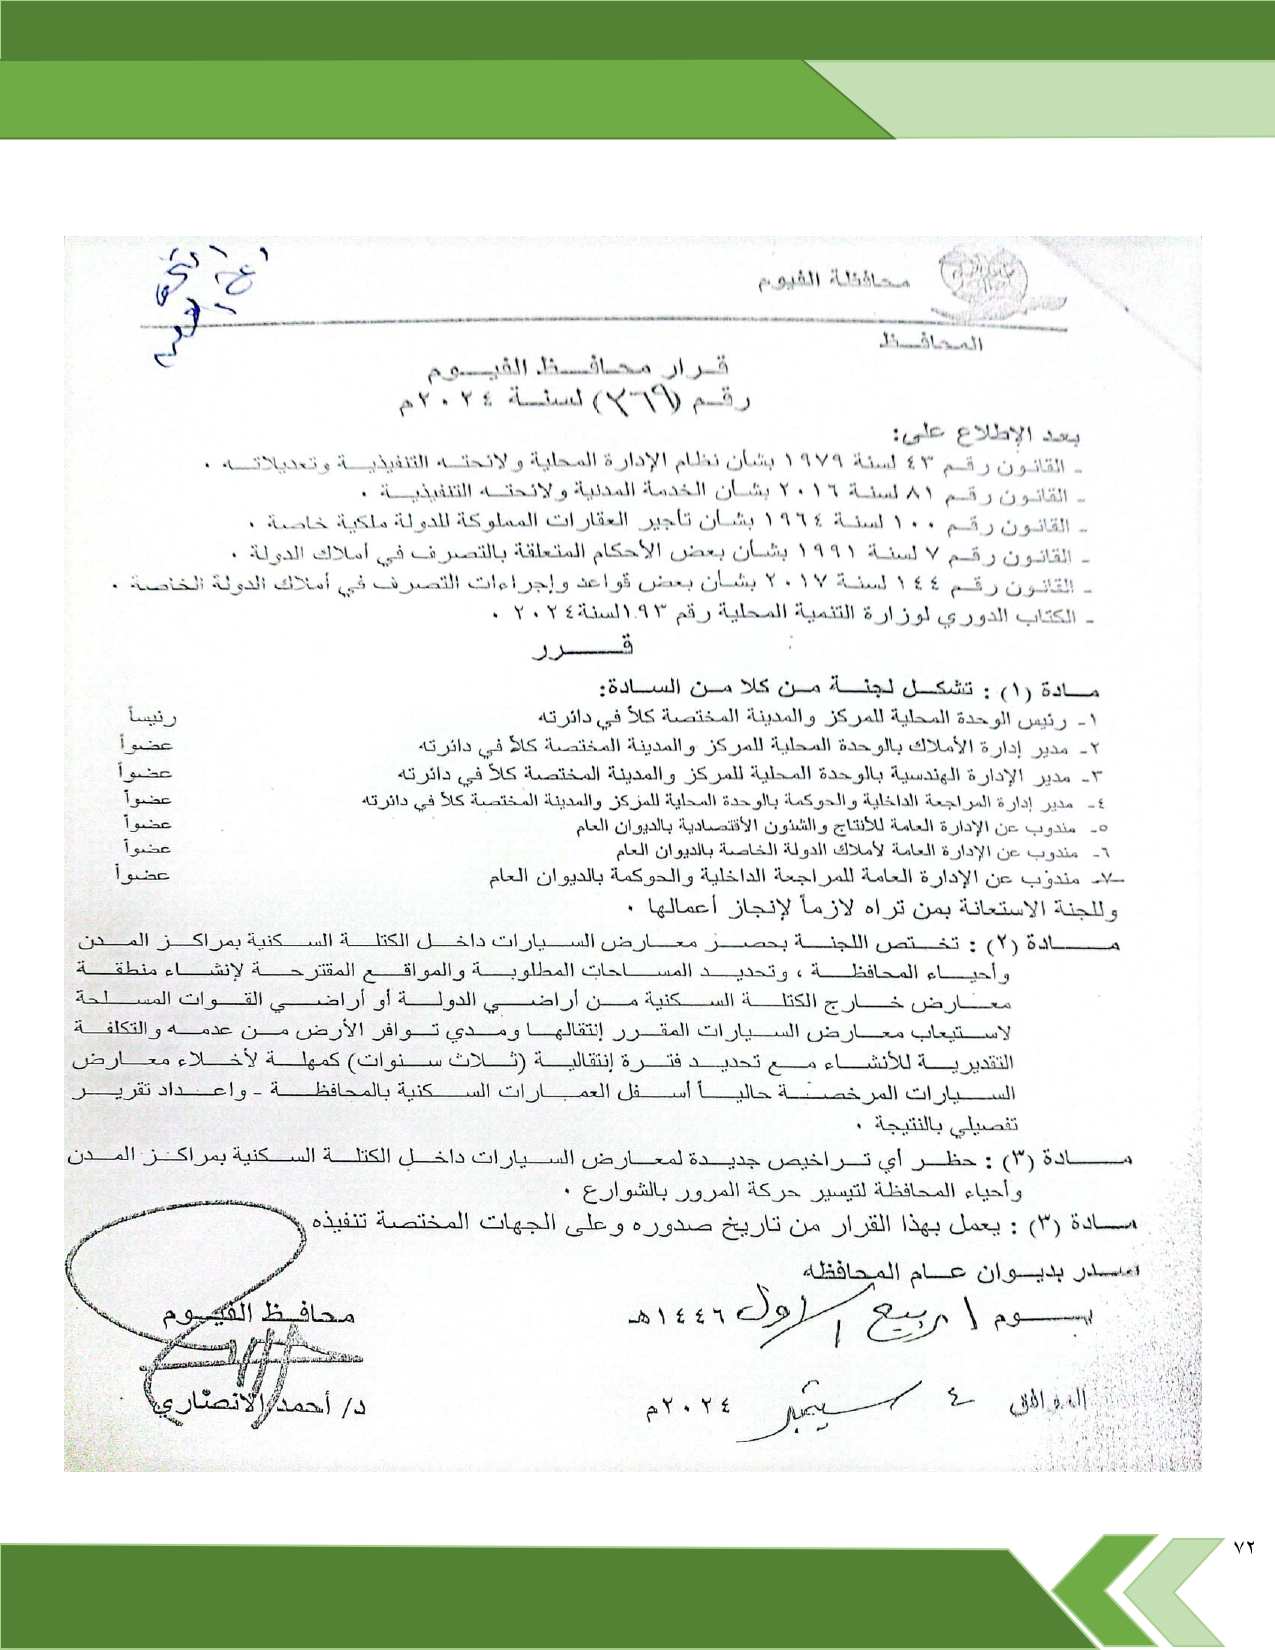 محافظة الفيوم
المحافظ
قرار محافظ الفيوم
رقم (٣٦٩) لسنة ٢٠٢٤م
بعد الإطلاع على:
- القانون رقم ٤٣ لسنة ١٩٧٩ بشأن نظام الإدارة المحلية ولائحته التنفيذية وتعديلاته .
- القانون رقم ٨١ لسنة ٢٠١٦ بشأن الخدمة المدنية ولائحته التنفيذية .
- القانون رقم ١٠٠ لسنة ١٩٦٤ بشأن تأجير العقارات المملوكة للدولة ملكية خاصة .
- القانون رقم ٧ لسنة ١٩٩١ بشأن بعض الأحكام المتعلقة بالتصرف في أملاك الدولة .
- القانون رقم ١٤٤ لسنة ٢٠١٧ بشأن بعض قواعد وإجراءات التصرف في أملاك الدولة الخاصة .
- الكتاب الدوري لوزارة التنمية المحلية رقم ١٩٣لسنة٢٠٢٤ .
قرر
مادة (١) : تشكل لجنة من كلا من السادة:
١- رئيس الوحدة المحلية للمركز والمدينة المختصة كلاً في دائرته رئيساً
٢- مدير إدارة الأملاك بالوحدة المحلية للمركز والمدينة المختصة كلاً في دائرته عضواً
٣- مدير الإدارة الهندسية بالوحدة المحلية للمركز والمدينة المختصة كلاً في دائرته عضواً
٤- مدير إدارة المراجعة الداخلية والحوكمة بالوحدة المحلية للمركز والمدينة المختصة كلاً في دائرته عضواً
٥- مندوب عن الإدارة العامة للأنتاج والشئون الأقتصادية بالديوان العام عضواً
٦- مندوب عن الإدارة العامة لأملاك الدولة الخاصة بالديوان العام عضواً
٧- مندوب عن الإدارة العامة للمراجعة الداخلية والحوكمة بالديوان العام عضواً
وللجنة الاستعانة بمن تراه لازماً لإنجاز أعمالها .
مادة (٢) : تختص اللجنة بحصر معارض السيارات داخل الكتلة السكنية بمراكز المدن
وأحياء المحافظة ، وتحديد المساحات المطلوبة والمواقع المقترحة لإنشاء منطقة
معارض خارج الكتلة السكنية من أراضي الدولة أو أراضي القوات المسلحة
لاستيعاب معارض السيارات المقرر إنتقالها ومدي توافر الأرض من عدمه والتكلفة
التقديرية للأنشاء مع تحديد فترة إنتقالية (ثلاث سنوات) كمهلة لأخلاء معارض
السيارات المرخصة حالياً أسفل العمارات السكنية بالمحافظة - واعداد تقرير
تفصيلي بالنتيجة .
مادة (٣) : حظر أي تراخيص جديدة لمعارض السيارات داخل الكتلة السكنية بمراكز المدن
وأحياء المحافظة لتيسير حركة المرور بالشوارع .
مادة (٣) : يعمل بهذا القرار من تاريخ صدوره وعلى الجهات المختصة تنفيذه
صدر بديوان عام المحافظه
يوم ١ ربيع الاول ١٤٤٦هـ
محافظ الفيوم
الموافق ٤ سبتمبر ٢٠٢٤م
د/ أحمد الانصاري
٧٢